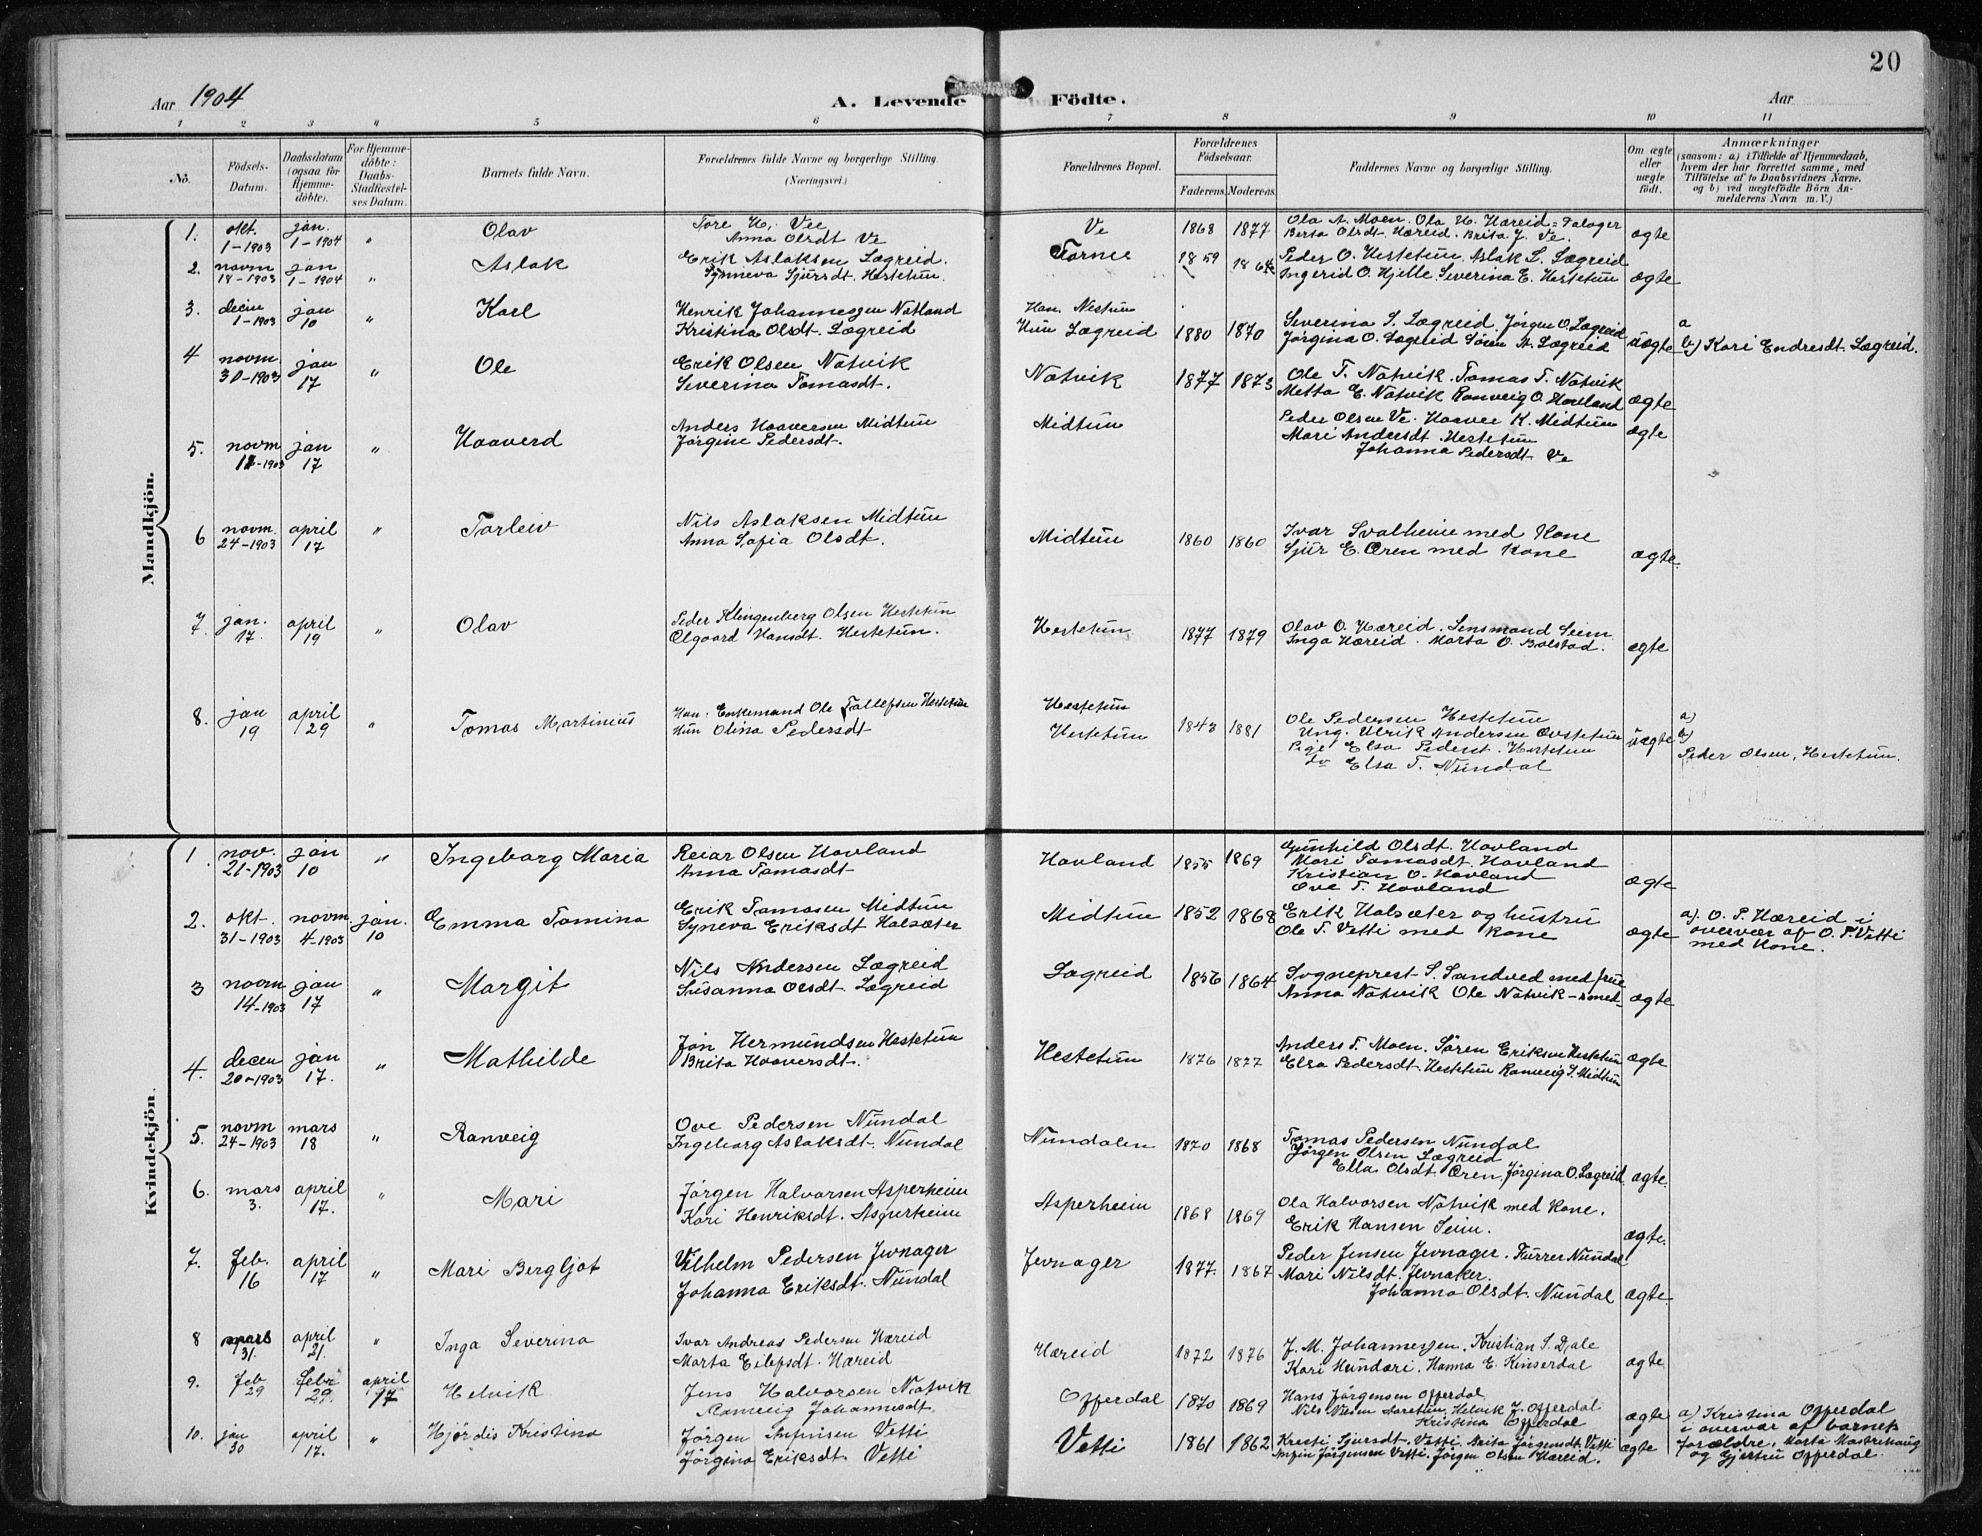 20
Aar 1904
A. Levende Födte.
Aar
1 2 3 4 5 6 7 8 9 10 11
No.
Födsels-Datum.
Daabsdatum (ogsaa for Hjemmedöbte).
For Hjemmedöbte: Daabs-Stadfæstelses Datum.
Barnets fulde Navn.
Forældrenes fulde Navne og borgerlige Stilling.
(Næringsvei.)
Forældrenes Bopæl.
Forældrenes Födselsaar.
Faderens. Moderens.
Faddernes Navne og borgerlige Stilling.
Om ægte eller uægte födt.
Anmærkninger
(saasom: a) i Tilfælde af Hjemmedaab,
hvem der har forrettet samme, med
Tilföielse af to Daabsvidners Navne,
og b) ved uægtefödte Börn Anmelderens Navn m. V.)
Mandkjön.
1. okt. 1-1903 jan. 1-1904 " Olav Tore H. Vee Ve 1868 1877 Ola A. Moen. Ola H. Hæreid = Falager ægte
Anna Olsdt Ve Berta Olsdt. Hæreid. Brita J. Ve.
2. novm 18-1903 jan 1-1904 " Aslak Erik Aslaksen Lægreid. Tornee 1859 1864 Peder O. Hestetun. Aslak L. Lægreid ægte
Synneva Sjursdt. Hestetun. Ingerid O. Hjelle. Severina E. Hestetun
3. decem 1-1903 jan 10 " Karl Henrik Johannesen Natland Han. Nestun 1880 1870 Severina S. Lægreid. Jörgen O. Lægreid uægte a
Kristina Olsdt. Lægreid Hun Lægreid Jörgina O. Lægreid Sören A. Lægreid b) Kari Endresdt. Lægreid.
4 novm 30-1903 jan 17 " Ole Erik Olsen Natvik Natvik 1877 1873 Ole T. Natvik. Tomas T. Natvik ægte
Severina Tomasdt. Metta E. Natvik Ranveig O. Hovland
5. novm 18-1903 jan 17 " Haaverd Anders Haaversen Midtun Midtun Peder Olsen Ve. Haavee K. Midtun ægte
Jörgine Pedersdt. Mari Andersdt. Hestetun
Johanna Pedersdt Ve
6 novm. 24-1903 april 17 " Torleiv Nils Aslaksen Midtun Midtun 1860 1860 Ivar Svalheim med Kone ægte.
Anna Sofia Olsdt. Sjur E. Øren med Kone
7. jan. 17. april 19 " Olav Peder Klingenberg Olsen Hestetun Hestetun 1877 1879 Olav O. Hæreid. Lensmand Seim ægte
Olgaard Hansdt. Hestetun. Inga Hæreid. Marta O. Bolstad.
8. jan 19 april 29 " Tomas Martinius Han: Enkemand Ole Tollefsen Hestetun Hestetun 1843 1881 Ole Pedersen Hestetun uægte a)
Hun Olina Pedersdt Hestetun Ung. Ulrik Andersen Øvstetun b)
Pige Elsa Pederst. Hestetun Peder Olsen, Hestetun.
do Elsa T. Nundal
Kvindekjön.
1 nov. 21-1903 jan 10 " Ingeborg Maria Reiar Olsen Hovland Hovland 1855 1869 Gunhild Olsdt. Hovland ægte
Anna Tomasdt Mari Tomasdt. Hovland
Kristian O. Hovland
Ove T. Hovland
2. okt. 31-1903 novm. 4-1903 jan. 10 Emma Tomina Erik Tomasen Midtun Midtun 1852 1868 Erik Halsæter og hustru ægte a). O. P. Hæreid i
Syneva Eriksdt Halsæter Ole T. Vetti med Kone overvær af O. T. Vetti
med Kone.
3 novm 14-1903 jan 17 " Margit Nils Andersen Lægreid Lægreid 1856 1864 Sogneprest S. Sandved med frue ægte
Susanna Olsdt Lægreid Anna Natvik Ole Natvik - smed
4. decem 20-1903 jan 17. " Mathilde Jon Hermundsen Hestetun Hestetun 1876 1877 Anders T. Moen. Sören Eriksen Hestetun ægte
Brita Haaversdt. Elsa Pedersdt. Hestetun Ranveig S. Midtun
5. novm 24-1903 mars 18 " Ranveig Ove Pedersen Nundal Nundalen 1870 1868 Tomas Pedersen Nundal ægte.
Ingeborg Aslaksdt. Nundal Jörgen Olsen Lægreid
Ella Olsdt. Øren. Jörgina O. Lægreid
6. mars 3. april 17. " Mari Jörgen Halvorsen Asperheim Asperheim 1868 1869 Ola Halvorsen Natvik med Kone. ægte.
Kari Henriksdt. Asperheim Erik Hansen Seim.
7. feb. 16 april 17 " Mari Bergljot Vilhelm Pedersen Jevnager Jevnager 1877. 1867 Peder Jensen Jevnager. Furrer Nundal ægte.
Johanna Eriksdt. Nundal Mari Nilsdt. Jevnaker.
Johanna Olsdt. Nundal
8 mars 31. april 21. " Inga Severina Ivar Andreas Pedersen Hæreid Hæreid 1872 1876 J. M. Johannessen. Kristian S. Dale ægte
Marta Eilefsdt. Hæreid Kari Hundari. Hanna E. Kinserdal
9. feb 29 febr 29. april 17 Helvik Jens Halvorsen Natvik Offerdal 1870 1869 Hans Jörgensen Offerdal ægte a) Kristina Offerdal
Ranveig Johannesdt. Nils Nilsen Helvik J. Offerdal i overvær af barnets
Kristina Offerdal forældre. Marta
10. jan 30 april 17. " Hjördis Kristina Jörgen Anfinsen Vetti Vetti 1861 1862 Kresti Sjursdt. Vetti. Brita Jörgensdt. Vetti ægte og Gjertru Offerdal
Jörgina Eriksdt. Vetti Anfin Jörgensen Vetti. Jörgen Olsen Hæreid.